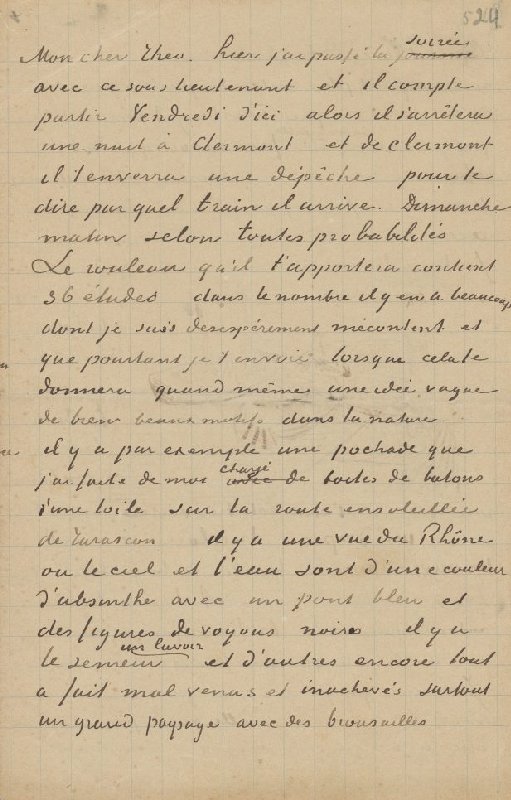 524
Mon cher Theo. hier j'ai passé la journée soirée
avec ce sous lieutenant et il compte
partir Vendredi d'ici alors il s'arrêtera
une nuit à Clermont et de Clermont
il t'enverra une dépêche pour te
dire par quel train il arrive. Dimanche
matin selon toutes probabilités
Le rouleau qu'il t'apportera contient
36 études dans le nombre il y en a beaucoup
dont je suis desespérément mécontent et
que pourtant je t'envoie lorsque cela te
donnera quand même une idée vague
de bien beaux motifs dans la nature
il y a par exemple une pochade que
j'ai faite de moi avec chargé de boites de batons
d'une toile sur la route ensoleillée
de Tarascon il y a une vue du Rhône
ou le ciel et l'eau sont d'une couleur
d'absinthe avec un pont bleu et
des figures de voyous noirs il y a
le semeur un lavoir et d'autres encore tout
a fait mal venus et inachevés surtout
un grand paysage avec des brousailles